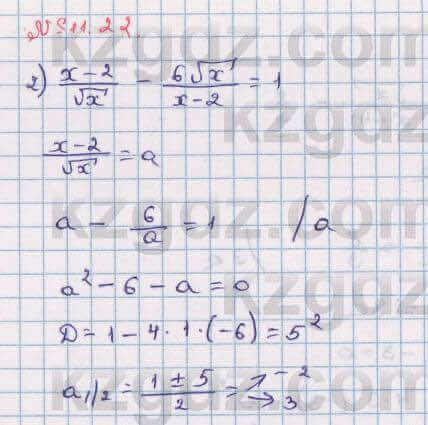 № 11.22.
2) (x-2)/√x - 6√x/(x-2) = 1
(x-2)/√x = a
a - 6/a = 1 /a
a² - 6 - a = 0
D = 1 - 4·1·(-6) = 5²
a₁/₂ = (1 ± 5)/2 = ↗ -2 → 3
kzgdz.com